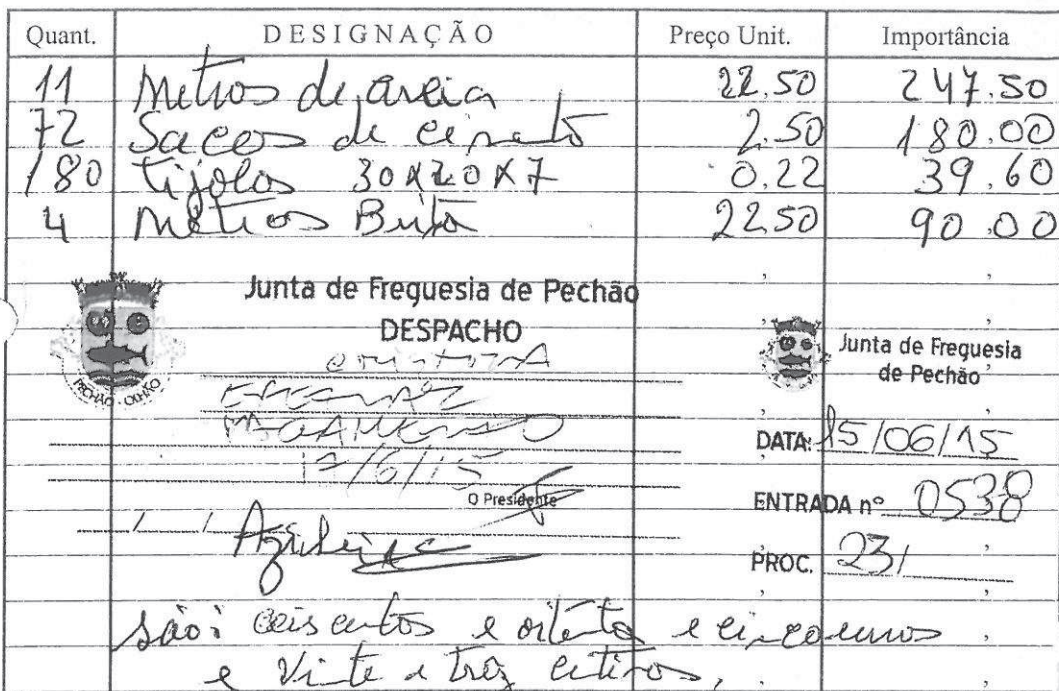 Quant. DESIGNAÇÃO Preço Unit. Importância
11 Metros de areia 22.50 247.50
72 Sacos de cimento 2.50 180.00
180 tijolos 30x20x7 0.22 39.60
4 Metros Brita 22.50 90.00
Junta de Freguesia de Pechão
DESPACHO
PAGAMENTO
17/6/15
O Presidente
PECHÃO - OLHÃO
Junta de Freguesia
de Pechão
DATA: 15/06/15
ENTRADA nº 0538
PROC. 23/
são: ceiscentos e oitenta e cinco euros
e vinte e trez centimos,